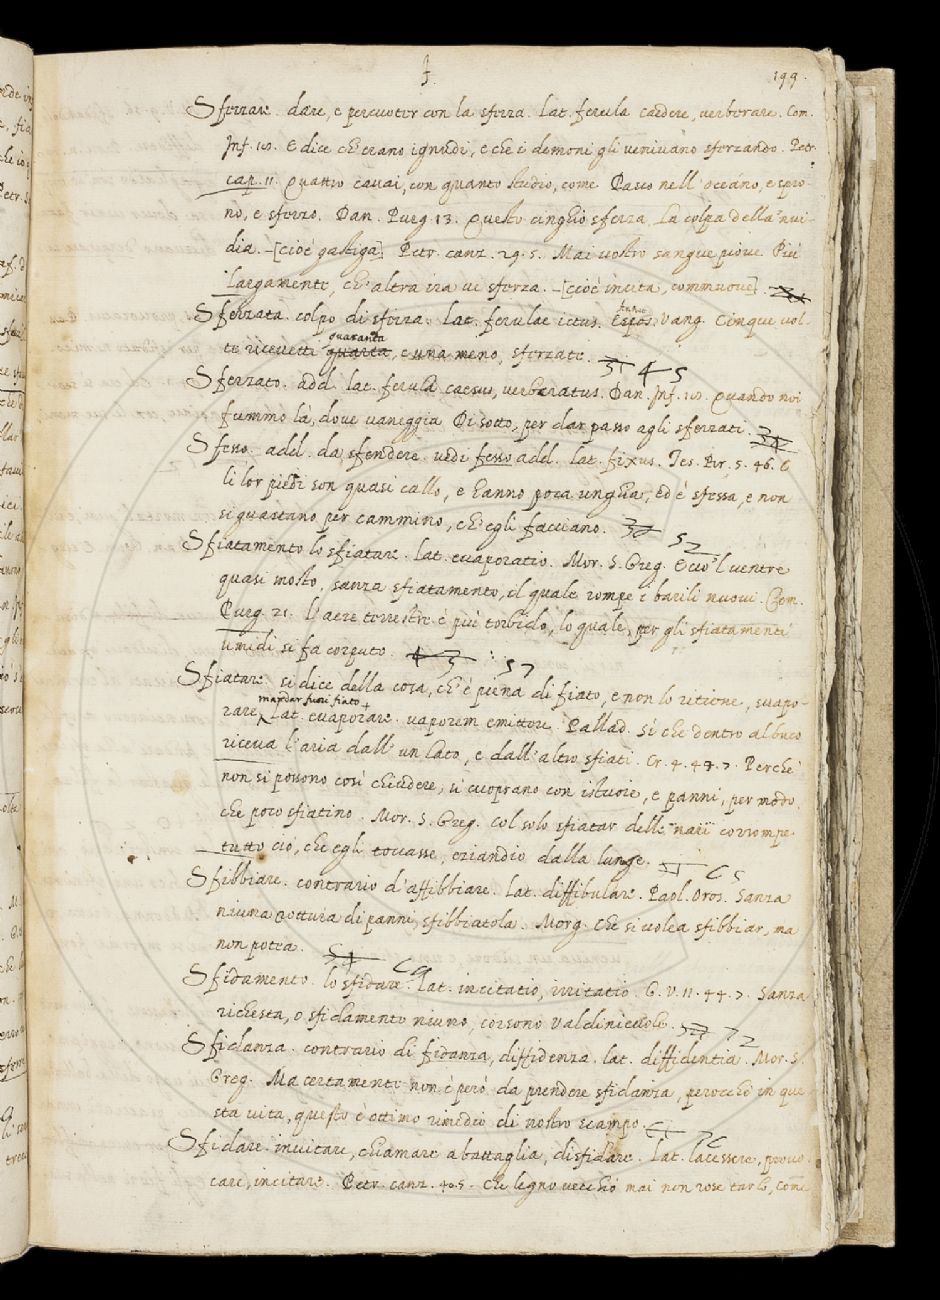 199.
Sferzare. dare, e percuoter con la sferza. Lat. ferula caedere, verberare. Com.
Inf. 18. E dice ch'erano ignudi, e che i demoni gli venivano sferzando. Petr.
cap. 11. Quattro cavai, con quanto studio, come Pasco nell'oceáno, e spro-
no, e sferzo. Dan. Purg. 13. Questo cinghio sferza La colpa della 'nvi-
dia. -[cioè gastiga] Petr. canz. 29. 5. Mai vostro sangue piove. Più
Largamente, ch'altra ira vi sferza. -[cioè incita, commuove].
Sferzata. colpo di sferza. Lat. ferulae ictus. Vang. Cinque vol-
te ricevetti quaranta quarta, e una meno, sferzate. 31 45
Sferzato. add. lat. ferula caesus, verberatus. Dan. Inf. 18. Quando noi
fummo là, dove vaneggia Di sotto, per dar passo agli sferzati.
Sfesso. add. da sfendere. vedi fesso add. lat. fixus. Tes. Pov. 5. 46. E
li lor piedi son quasi callo, e hanno poca unghia, ed è sfessa, e non
si guastano per cammino, ch'egli facciano. 52
Sfiatamento lo sfiatare. Lat. evaporatio. Mor. S. Greg. Ecco 'l ventre
quasi mosto, sanza sfiatamento, il quale rompe i barili nuovi. Com.
Purg. 21. L'aere terrestre è più torbido, lo quale, per gli sfiatamenti
umidi si fa corputo. 43 57
Sfiatare. si dice della cosa, ch'è piena di fiato, e non lo ritiene, svapo-
rare, mandar fuori fiato Lat. evaporare. vaporem emittere. Pallad. Sì che dentro al buco
riceva l'aria dall'un lato, e dall'altro sfiati. Cr. 4. 47. 7. Perchè
non si possono così chiudere, si cuoprano con istuoie, e panni, per modo,
che poco sfiatino. Mor. S. Greg. Col solo sfiatar delle nari corrompe
tutto ciò, che egli toccasse, eziandio dalla lunge.
Sfibbiare. contrario d'affibbiare. Lat. diffibulare. Paol. Oros. Sanza
niuna rottura di panni, sfibbiatola. Morg. Che si volea sfibbiar, ma
non potea.
Sfidamento. lo sfidare. Lat. incitatio, irritatio. G. V. 11. 44. 7. Sanza
richesta, o sfidamento niuno, corsono Valdinievole. 72
Sfidanza. contrario di fidanza, diffidenza. lat. diffidentia. Mor. S.
Greg. Ma certamente non è però da prendere sfidanza, perocchè in que
sta vita, questo è ottimo rimedio di nostro scampo.
Sfidare. invitare, chiamare a battaglia, disfidare. Lat. lacessere, provo-
care, incitare. Petr. canz. 40. 5. Che legno vecchio mai non rose tarlo, come